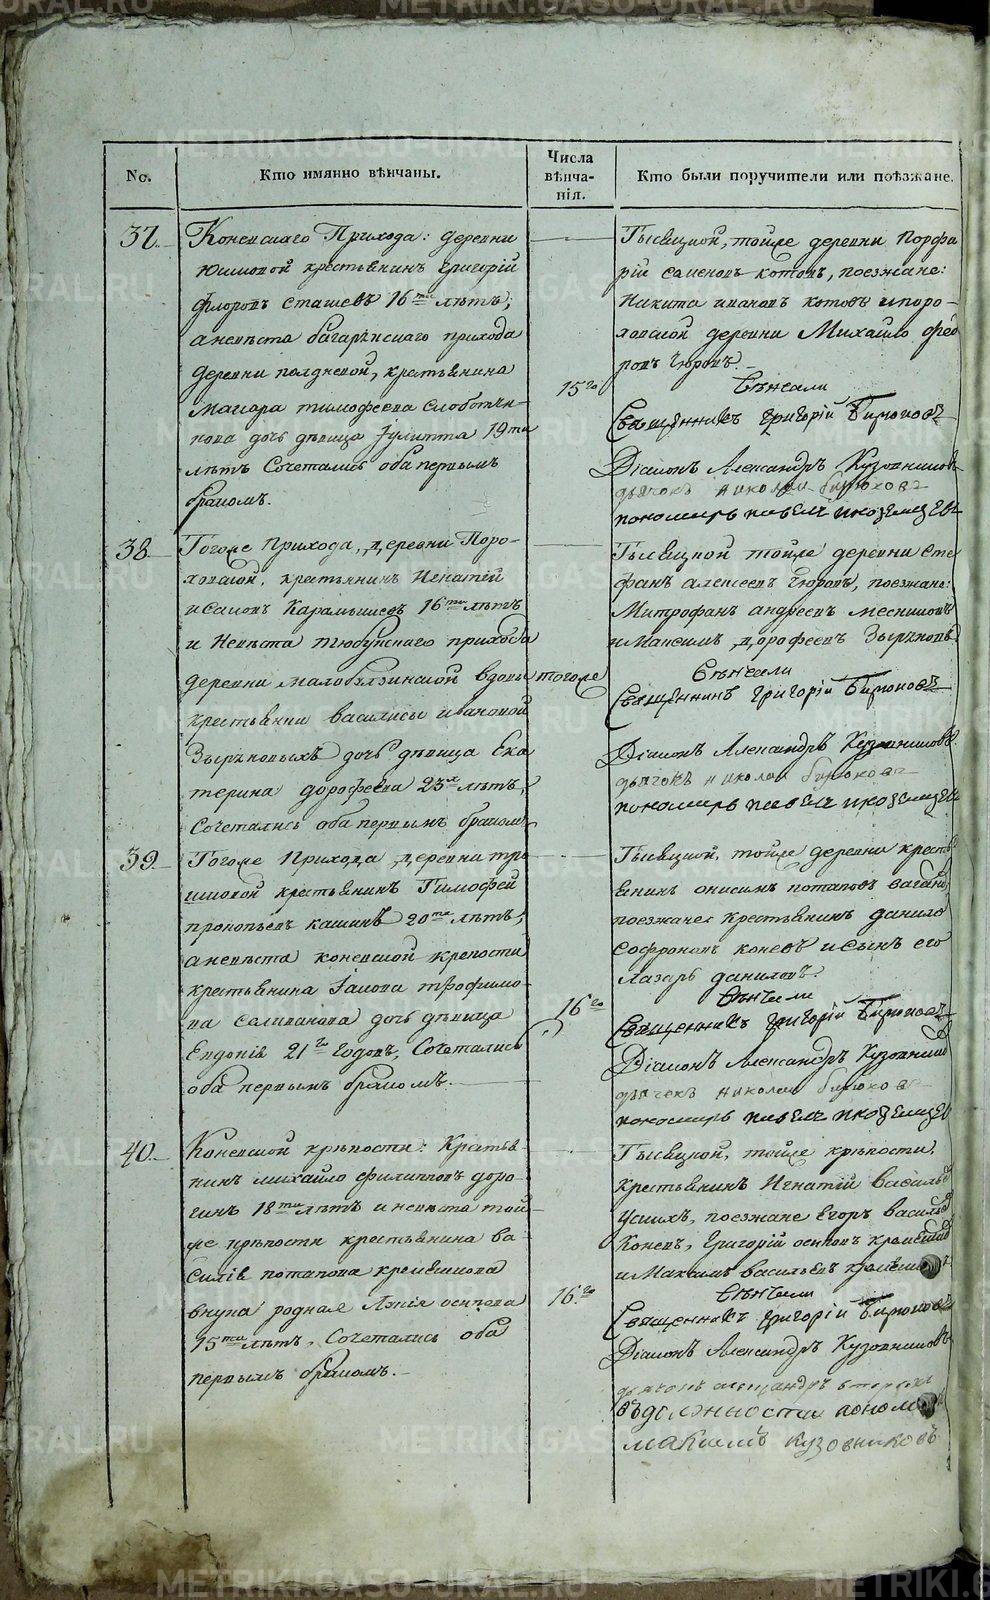 METRIKI.GASO-URAL.RU
No.
Кто имянно вѣнчаны.
Числа
вѣнча-
нія.
Кто были поручители или поѣзжане.
37.
Коневскаго Прихода: деревни
Юшковой крестьянинъ григорій
флоровъ сташевъ 16ти лѣтъ;
аневѣста багарѣкскаго прихода
деревни полдневой, крестьянина
Макара тимофеева слобоTчи-
кова дочь дѣвица Іулитта 19ти
лѣтъ Сочетались оба первымъ
бракомъ.
15го
тойже деревни Порфи
рій семеновъ котовъ, поезжане:
Никита ивановъ котовъ ипоро-
ховской деревни Михайло фео
ровъ Чюровъ.
Вѣнчали
Священникъ григорій Бирюковъ
Діаконъ Александръ Кузовниковъ
дьячокъ николаи бирюковъ
пономарь павелъ
38
Тогоже прихода, деревни Поро-
ховской, крестьянинъ Игнатій
исаковъ Карамышевъ 16ти лѣтъ
и Невѣста тюбукскаго прихода
деревни вдовы
крестьянки василисы ивановой
Зырѣновыхъ дочь дѣвица Ека
терина дорофеева 23хъ лѣтъ,
Сочетались оба первымъ бракомъ
тогоже
тойже деревни Сте
фанъ алексеевъ Чюровъ, поезжане:
Митрофанъ андреевъ месниковъ
и Максимъ дорофеевъ Зырѣновъ
Вѣнчали
Священникъ григорій Бирюковъ
Діаконъ Александръ Кузовниковъ
дьячокъ николаи бирюковъ
пономарь павелъ
39
Тогоже Прихода, деревни
крестьянинъ Тимофей
прокопьевъ кашинъ 20ти лѣтъ,
аневѣста коневской крепости
крестьянина Іакова трофимо-
ва селиванова дочь дѣвица
Евдокія 21го годовъ, Сочетались
оба первымъ бракомъ.
16го
тойже деревни кресть
янинъ онисимъ потаповъ
поезжане: крестьянинъ данило
софроновъ коневъ исынъ его
Лазарь даниловъ.
Вѣнчали
Священникъ григорій Бирюковъ
Діаконъ Александръ Кузовник
дьячекъ николаи бирюковъ
пономарь павелъ
40.
Коневской крѣпости: Крестья-
нинъ михайло филиповъ доро-
гинъ 18ти лѣтъ иневѣста той
же крѣпости крестьянина ва-
силія потапова кремешкова
внука родная осипова
15ти лѣтъ, Сочетались оба
первымъ бракомъ.
16.го
тойже крѣпости,
крестьянинъ Игнатій василье
Усихъ, поезжане Егоръ василье
Коневъ, григорій осиповъ
и Максимъ васильевъ
Вѣнчали
Священникъ григорій Бирюковъ
Діаконъ Александръ Кузовниковъ
въдолжности поном
максимъ кузовниковъ